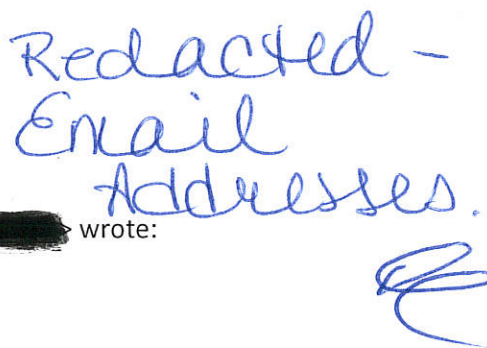 Redacted -
Email
Addresses.
> wrote: